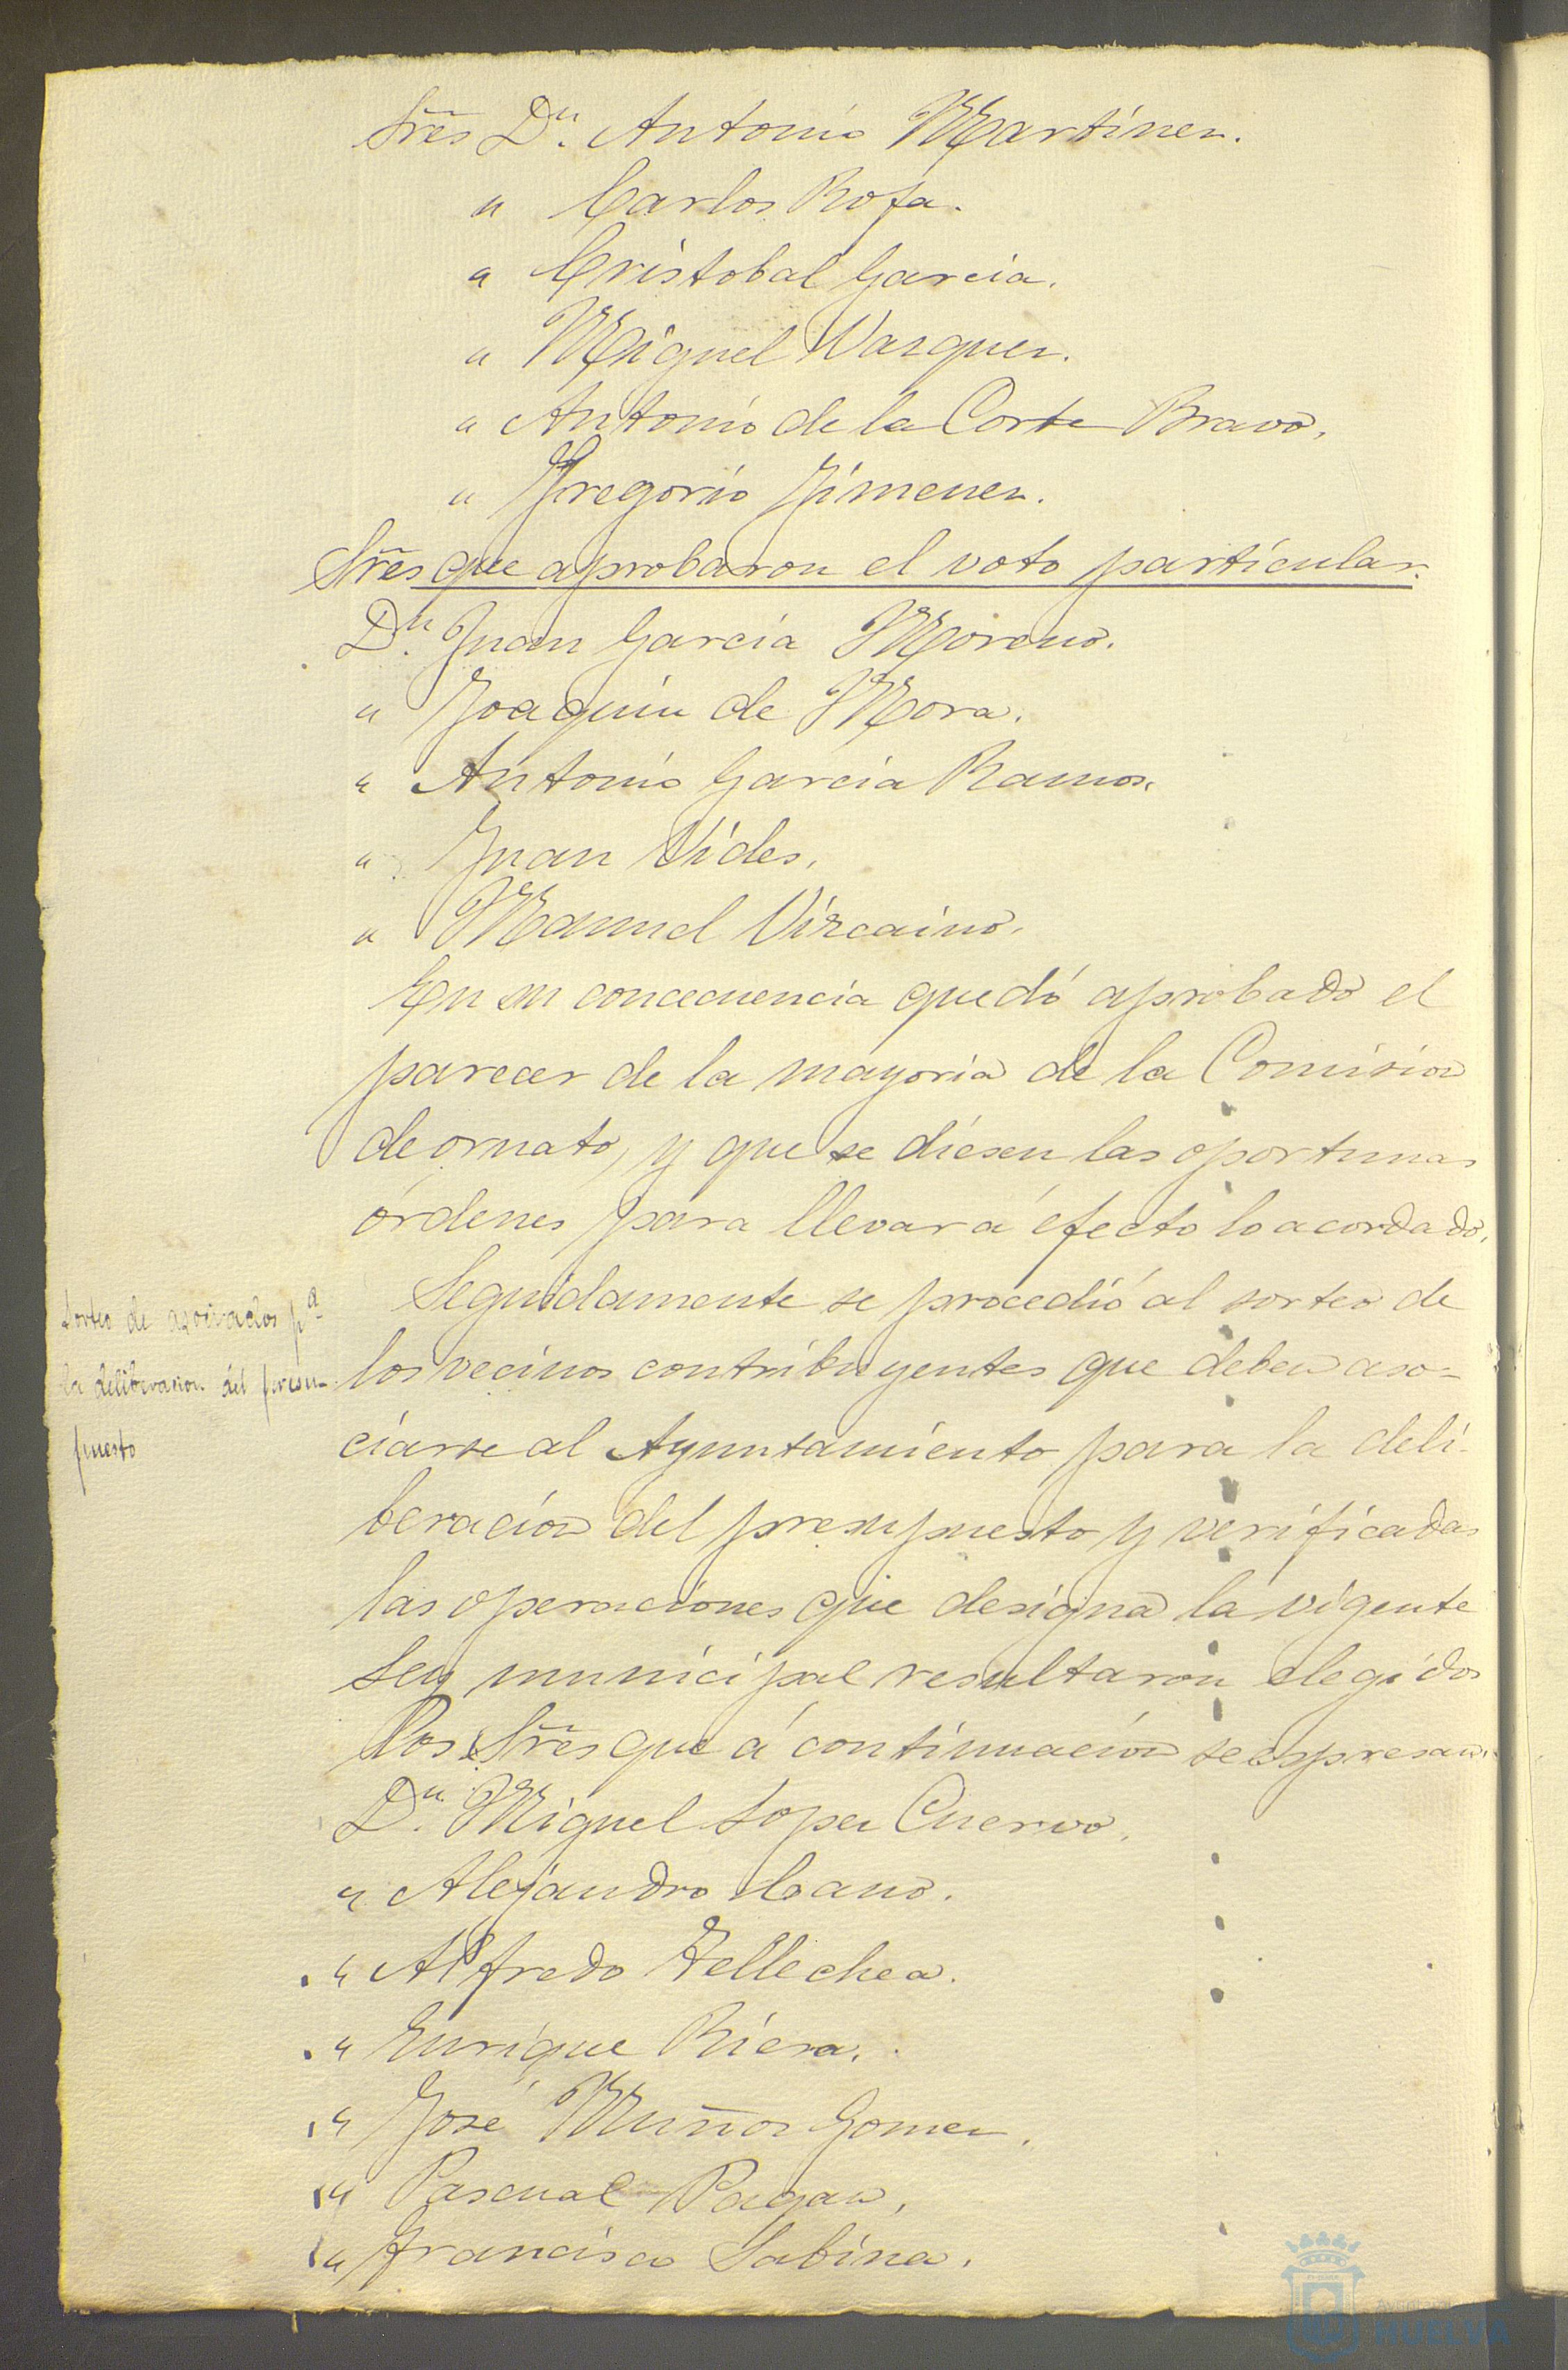 Sres Dn. Antonio Martinez.
" Carlos Rofa.
" Cristobal Garcia.
" Miguel Vazquez.
" Antonio de la Corte Bravo.
" Gregorio Jimenez.
Sres que aprobaron el voto particular.
Dn. Juan Garcia Moreno.
" Joaquin de Mora.
" Antonio Garcia Ramos.
" Juan Vides.
" Manuel Vizcaino.
En su concecuencia quedó aprobado el
parecer de la mayoria de la Comision
de ornato, y que se diesen las oportunas
órdenes para llevar á efecto lo acordado.
Sorteo de asociados pa.
la deliberacion del presu-
puesto
Seguidamente se procedió al sorteo de
los vecinos contribuyentes que deben aso-
ciarse al Ayuntamiento para la deli-
beración del presupuesto y verificadas
las operaciones que designa la vigente
Ley municipal resultaron elegidos
los Sres que á continuación se espresan.
Dn. Miguel Lopez Cuervo.
" Alejandro Cano.
" Alfredo Tellechea.
" Enrique Riera.
" José Muñoz Gomez.
" Pascual Pagan.
" Francisco Sabina.
HUELVA